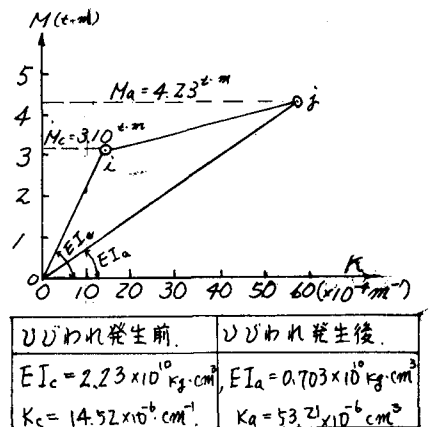 M(t・m)
5
4
3
2
1
0
Ma=4.23t・m
Mc=3.10t・m
j
i
EIc
EIa
K
0 10 20 30 40 50 60(×10⁻⁴m⁻¹)
ひびわれ発生前. ひびわれ発生後.
EIc=2.23×10¹⁰kg・cm³, EIa=0.703×10¹⁰kg・cm³
Kc=14.52×10⁻⁶cm⁻¹. Ka=53.21×10⁻⁶cm³